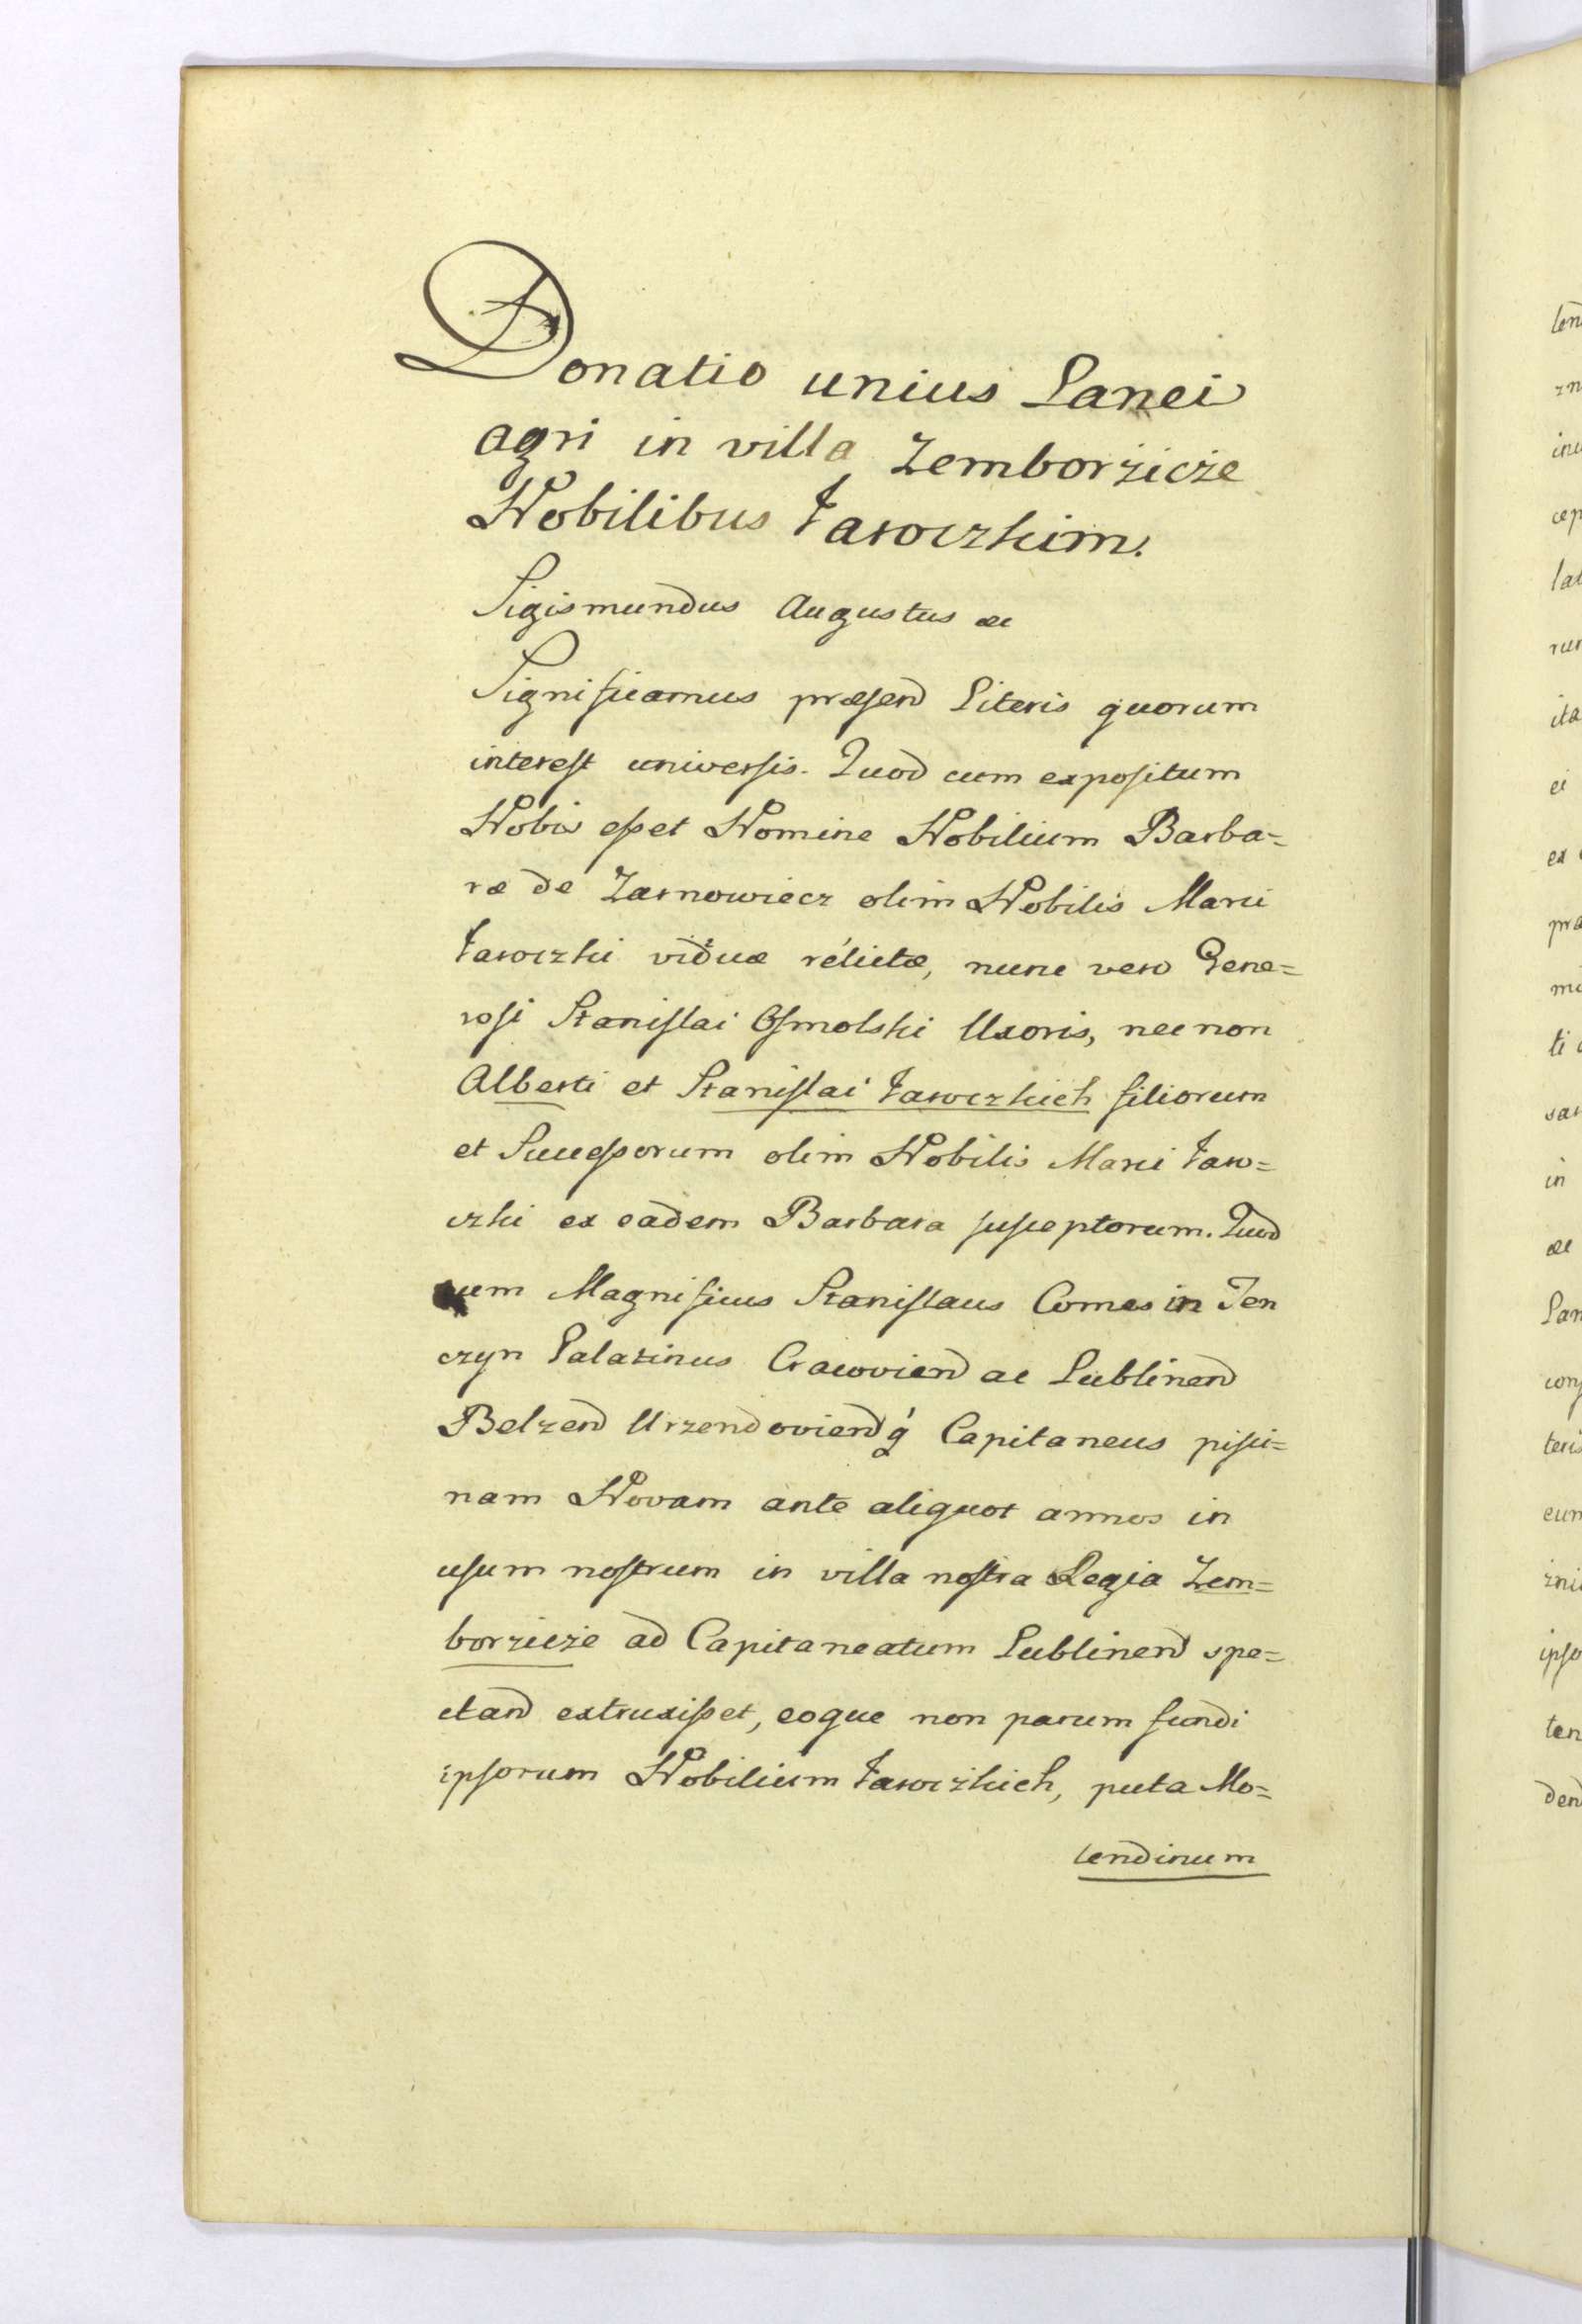 Donatio unius Lanei
agri in villa Zemborzicze
Nobilibus Jaroczkim.
Sigismundus Augustus &c
Significamus præsend Literis quorum
interest universis. Quod cum expositum
Nobis esset Nomine Nobilium Barba=
ræ de Zarnowiecz olim Nobilis Marci
Jaroczki viduæ relictæ, nunc vero Gene=
rosi Stanislai Osmolski Uxoris, nec non
Alberti et Stanislai Jaroczkich filiorum
et Successorum olim Nobilis Marci Jaro=
czki ex eadem Barbara susceptorum. Quod
cum Magnificus Stanislaus Comes in Ten
czyn Palatinus Cracoviend ac Lublinend
Belzend Urzendoviend q́ Capitaneus pisci=
nam Novam ante aliquot annos in
usum nostrum in villa nostra Regia Zem=
borzicze ad Capitaneatum Lublinend spe=
ctand extruxisset, eoque non parum fundi
ipsorum Nobilium Jarocżkich, puta Mo=
lendinum